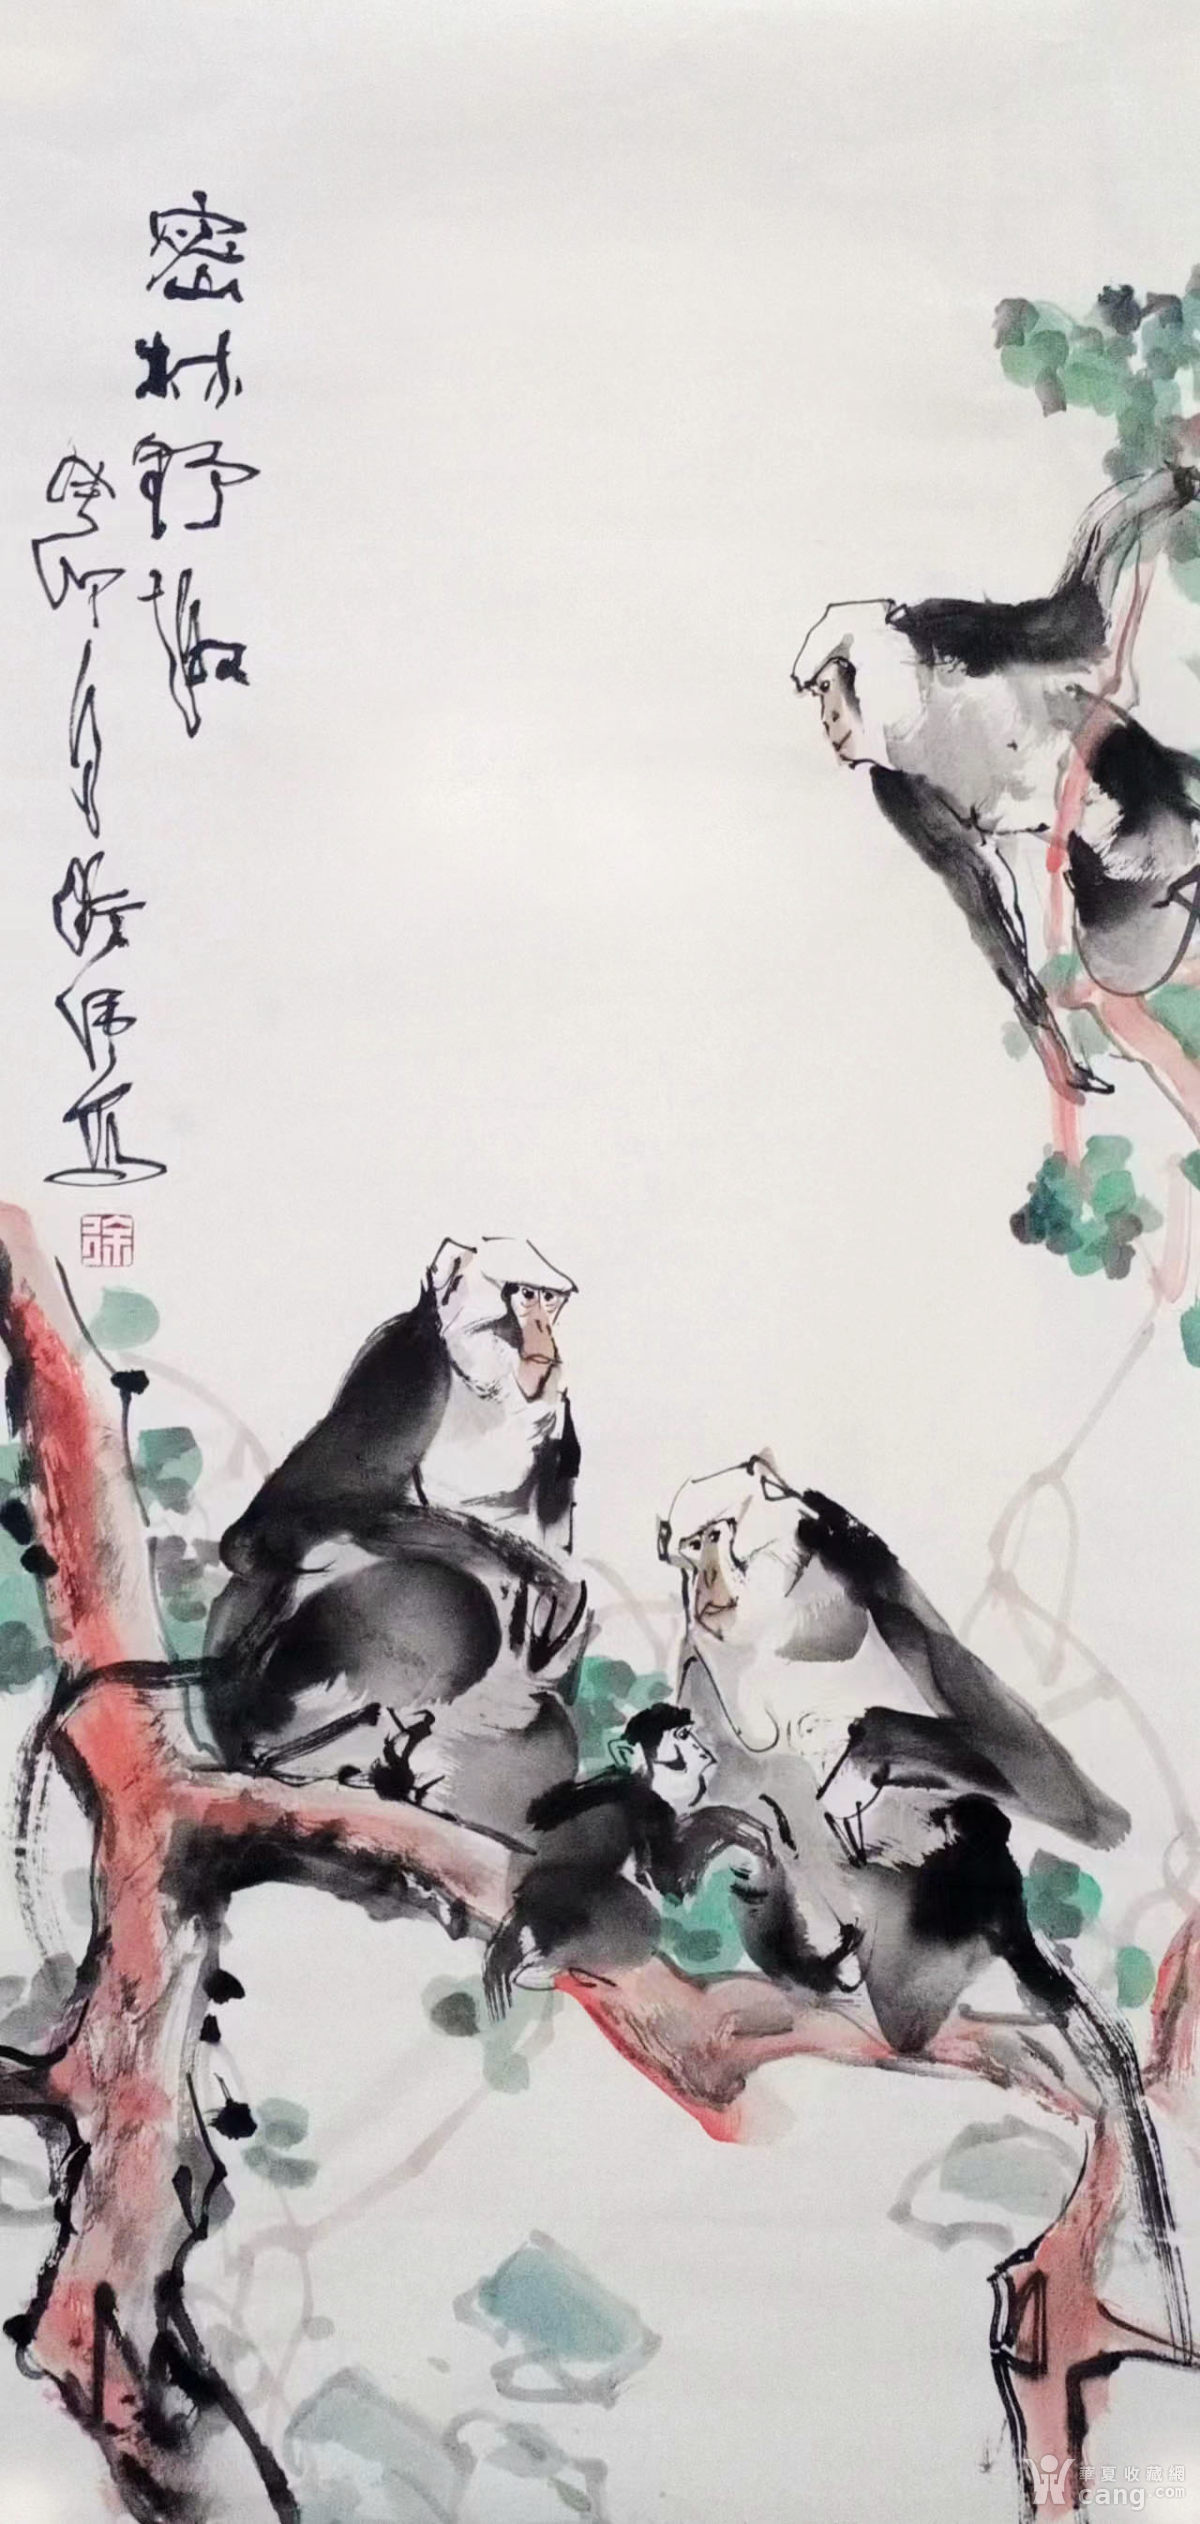 密林野趣
癸卯年徐伟写
徐
華夏收藏網
cang.com